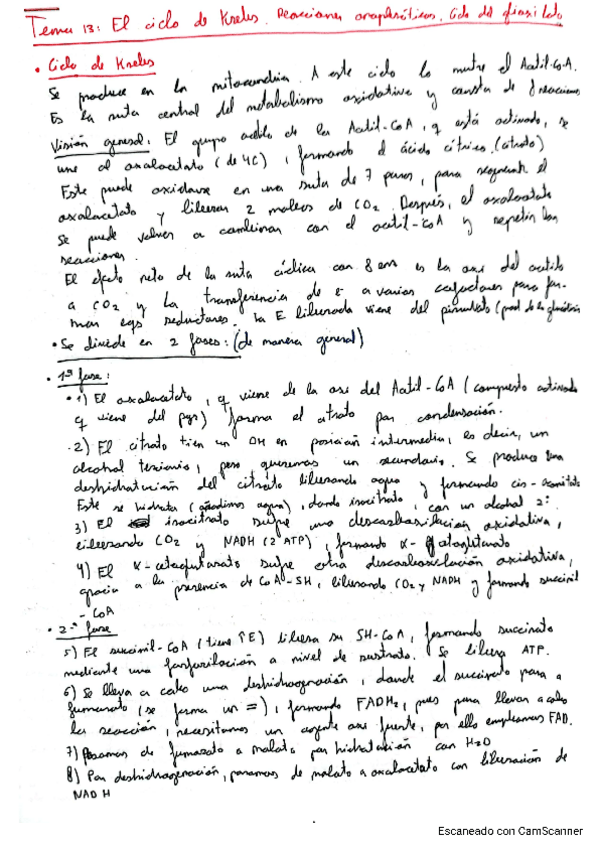 Tema 13: El ciclo de Krebs. Reacciones anapleróticas. Ciclo del glioxilato
• Ciclo de Krebs
Se produce en la mitocondria. A este ciclo lo nutre el Acetil-CoA.
Es la ruta central del metabolismo oxidativo y consta de 8 reacciones
Visión general: El grupo acetilo de la Acetil-CoA, q está activado, se
une al oxalacetato (de 4C), formando el ácido cítrico (citrato)
Este puede oxidarse en una ruta de 7 pasos, para regenerar el
oxalacetato y liberar 2 moles de CO2. Después, el oxalacetato
se puede volver a combinar con el acetil-CoA y repetir las
reacciones.
El efecto neto de la ruta cíclica con 8 enz es la oxi del acetilo
a CO2 y la transferencia de e- a varios cofactores para for-
mar eqs reductores. La E liberada viene del piruvato (prod de la glucólisis
• Se divide en 2 fases: (de manera general)
• 1ª fase:
• 1) El oxalacetato, q viene de la oxi del Acetil-CoA (compuesto activado
q viene del pyr) forma el citrato por condensación.
·2) El citrato tien un OH en posición intermedia, es decir, un
alcohol terciario, pero queremos un secundario. Se produce una
deshidratación del citrato liberando agua y formando cis-aconitato
Este se hidrata (añadimos agua), dando isocitrato, con un alcohol 2º
3) El isocitrato sufre una descarboxilación oxidativa,
liberando CO2 y NADH (2 ATP), formando α-
4) El α-cetoglutarato sufre otra descarboxilación oxidativa,
gracias a la presencia de CoA-SH, liberando CO2 y NADH y formando succinil
-CoA
• 2ª fase
5) El succinil-CoA (tiene ↑E) libera su SH-CoA, formando succinato
mediante una fosforilación a nivel de sustrato. Se libera ATP.
6) Se lleva a cabo una deshidrogenación, donde el succinato pasa a
fumarato (se forma un =), formando FADH2, pues para llevar a cabo
la reacción, necesitamos un agente oxi fuerte, por ello empleamos FAD.
7) Pasamos de fumarato a malato por hidratación con H2O
8) Por deshidrogenación, pasamos de malato a oxalacetato con liberación de
NADH
Escaneado con CamScanner